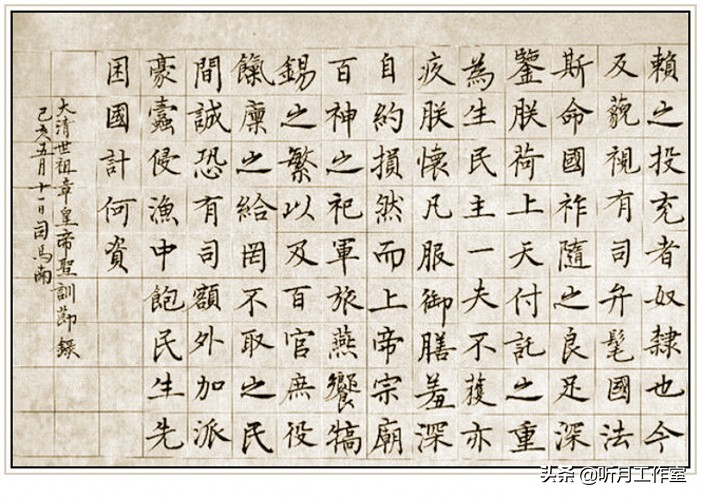 賴之投充者奴隸也今
及藐視有司弁髦國法
斯命國祚隨之良足深
鑒朕荷上天付託之重
為生民主一夫不獲亦
疚朕懷凡服御膳羞深
自約損然而上帝宗廟
百神之祀軍旅燕饗犒
錫之繁以及百官庶役
餼廩之給罔不取之民
間誠恐有司額外加派
豪蠹侵漁中飽民生先
困國計何資
大清世祖章皇帝聖訓節錄
己亥五月十一日司馬南
头条 @听月工作室